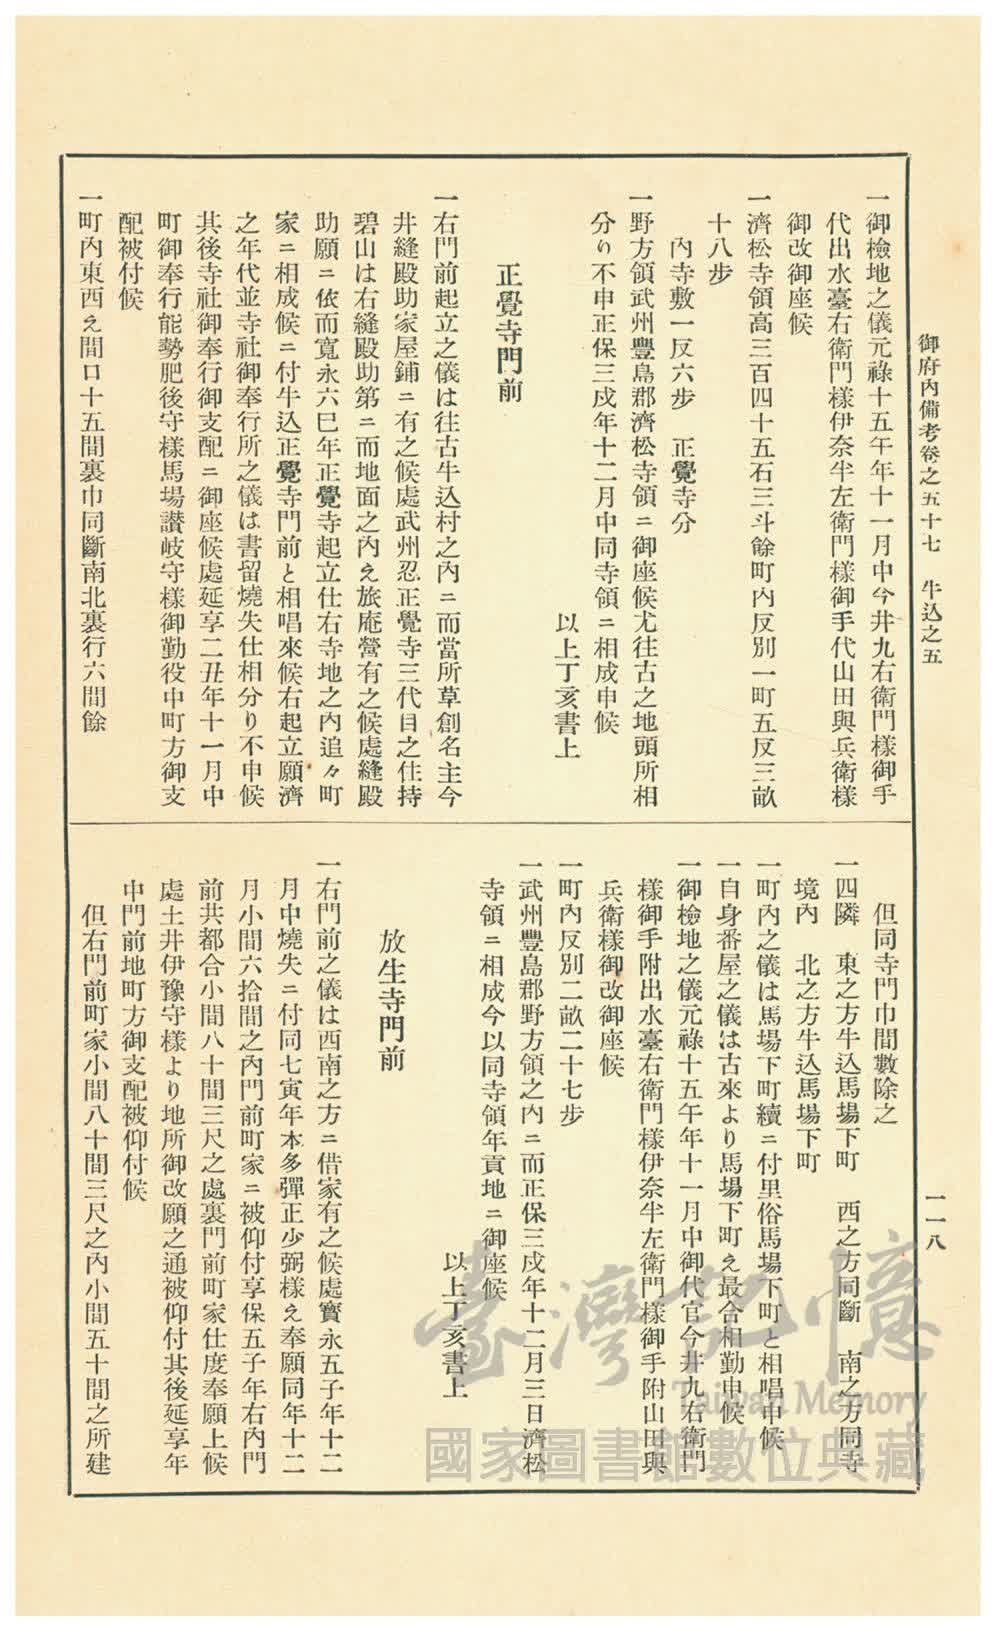 御府內備考卷之五十七　牛込之五
一一八
一御檢地之儀元祿十五午年十一月中今井九右衛門樣御手
代出水臺右衛門樣伊奈半左衛門樣御手代山田與兵衛樣
御改御座候
一濟松寺領高三百四十五石三斗餘町內反別一町五反三畝
十八步
內寺敷一反六步　正覺寺分
一野方領武州豐島郡濟松寺領ニ御座候尤往古之地頭所相
分り不申正保三戌年十二月中同寺領ニ相成申候
以上丁亥書上
正覺寺門前
一右門前起立之儀は往古牛込村之內ニ而當所草創名主今
井縫殿助家屋鋪ニ有之候處武州忍正覺寺三代目之住持
碧山は右縫殿助第ニ而地面之內え旅庵營有之候處縫殿
助願ニ依而寬永六巳年正覺寺起立仕右寺地之內追々町
家ニ相成候ニ付牛込正覺寺門前と相唱來候右起立願濟
之年代並寺社御奉行所之儀は書留燒失仕相分り不申候
其後寺社御奉行御支配ニ御座候處延享二丑年十一月中
町御奉行能勢肥後守樣馬場讃岐守樣御勤役中町方御支
配被付候
一町內東西え間口十五間裏巾同斷南北裏行六間餘
但同寺門巾間數除之
一四隣　東之方牛込馬場下町　西之方同斷　南之方同寺
境內　北之方牛込馬場下町
一町內之儀は馬場下町續ニ付里俗馬場下町と相唱申候
一自身番屋之儀は古來より馬場下町え最合相勤申候
一御檢地之儀元祿十五午年十一月中御代官今井九右衛門
樣御手附出水臺右衛門樣伊奈半左衛門樣御手附山田與
兵衛樣御改御座候
一町內反別二畝二十七步
一武州豐島郡野方領之內ニ而正保三戌年十二月三日濟松
寺領ニ相成今以同寺領年貢地ニ御座候
以上丁亥書上
放生寺門前
一右門前之儀は西南之方ニ借家有之候處寳永五子年十二
月中燒失ニ付同七寅年本多彈正少弼樣え奉願同年十二
月小間六拾間之內門前町家ニ被仰付享保五子年右內門
前共都合小間八十間三尺之處裏門前町家仕度奉願上候
處土井伊豫守樣より地所御改願之通被仰付其後延享年
中門前地町方御支配被仰付候
但右門前町家小間八十間三尺之內小間五十間之所建
臺灣記憶
Taiwan Memory
國家圖書館數位典藏